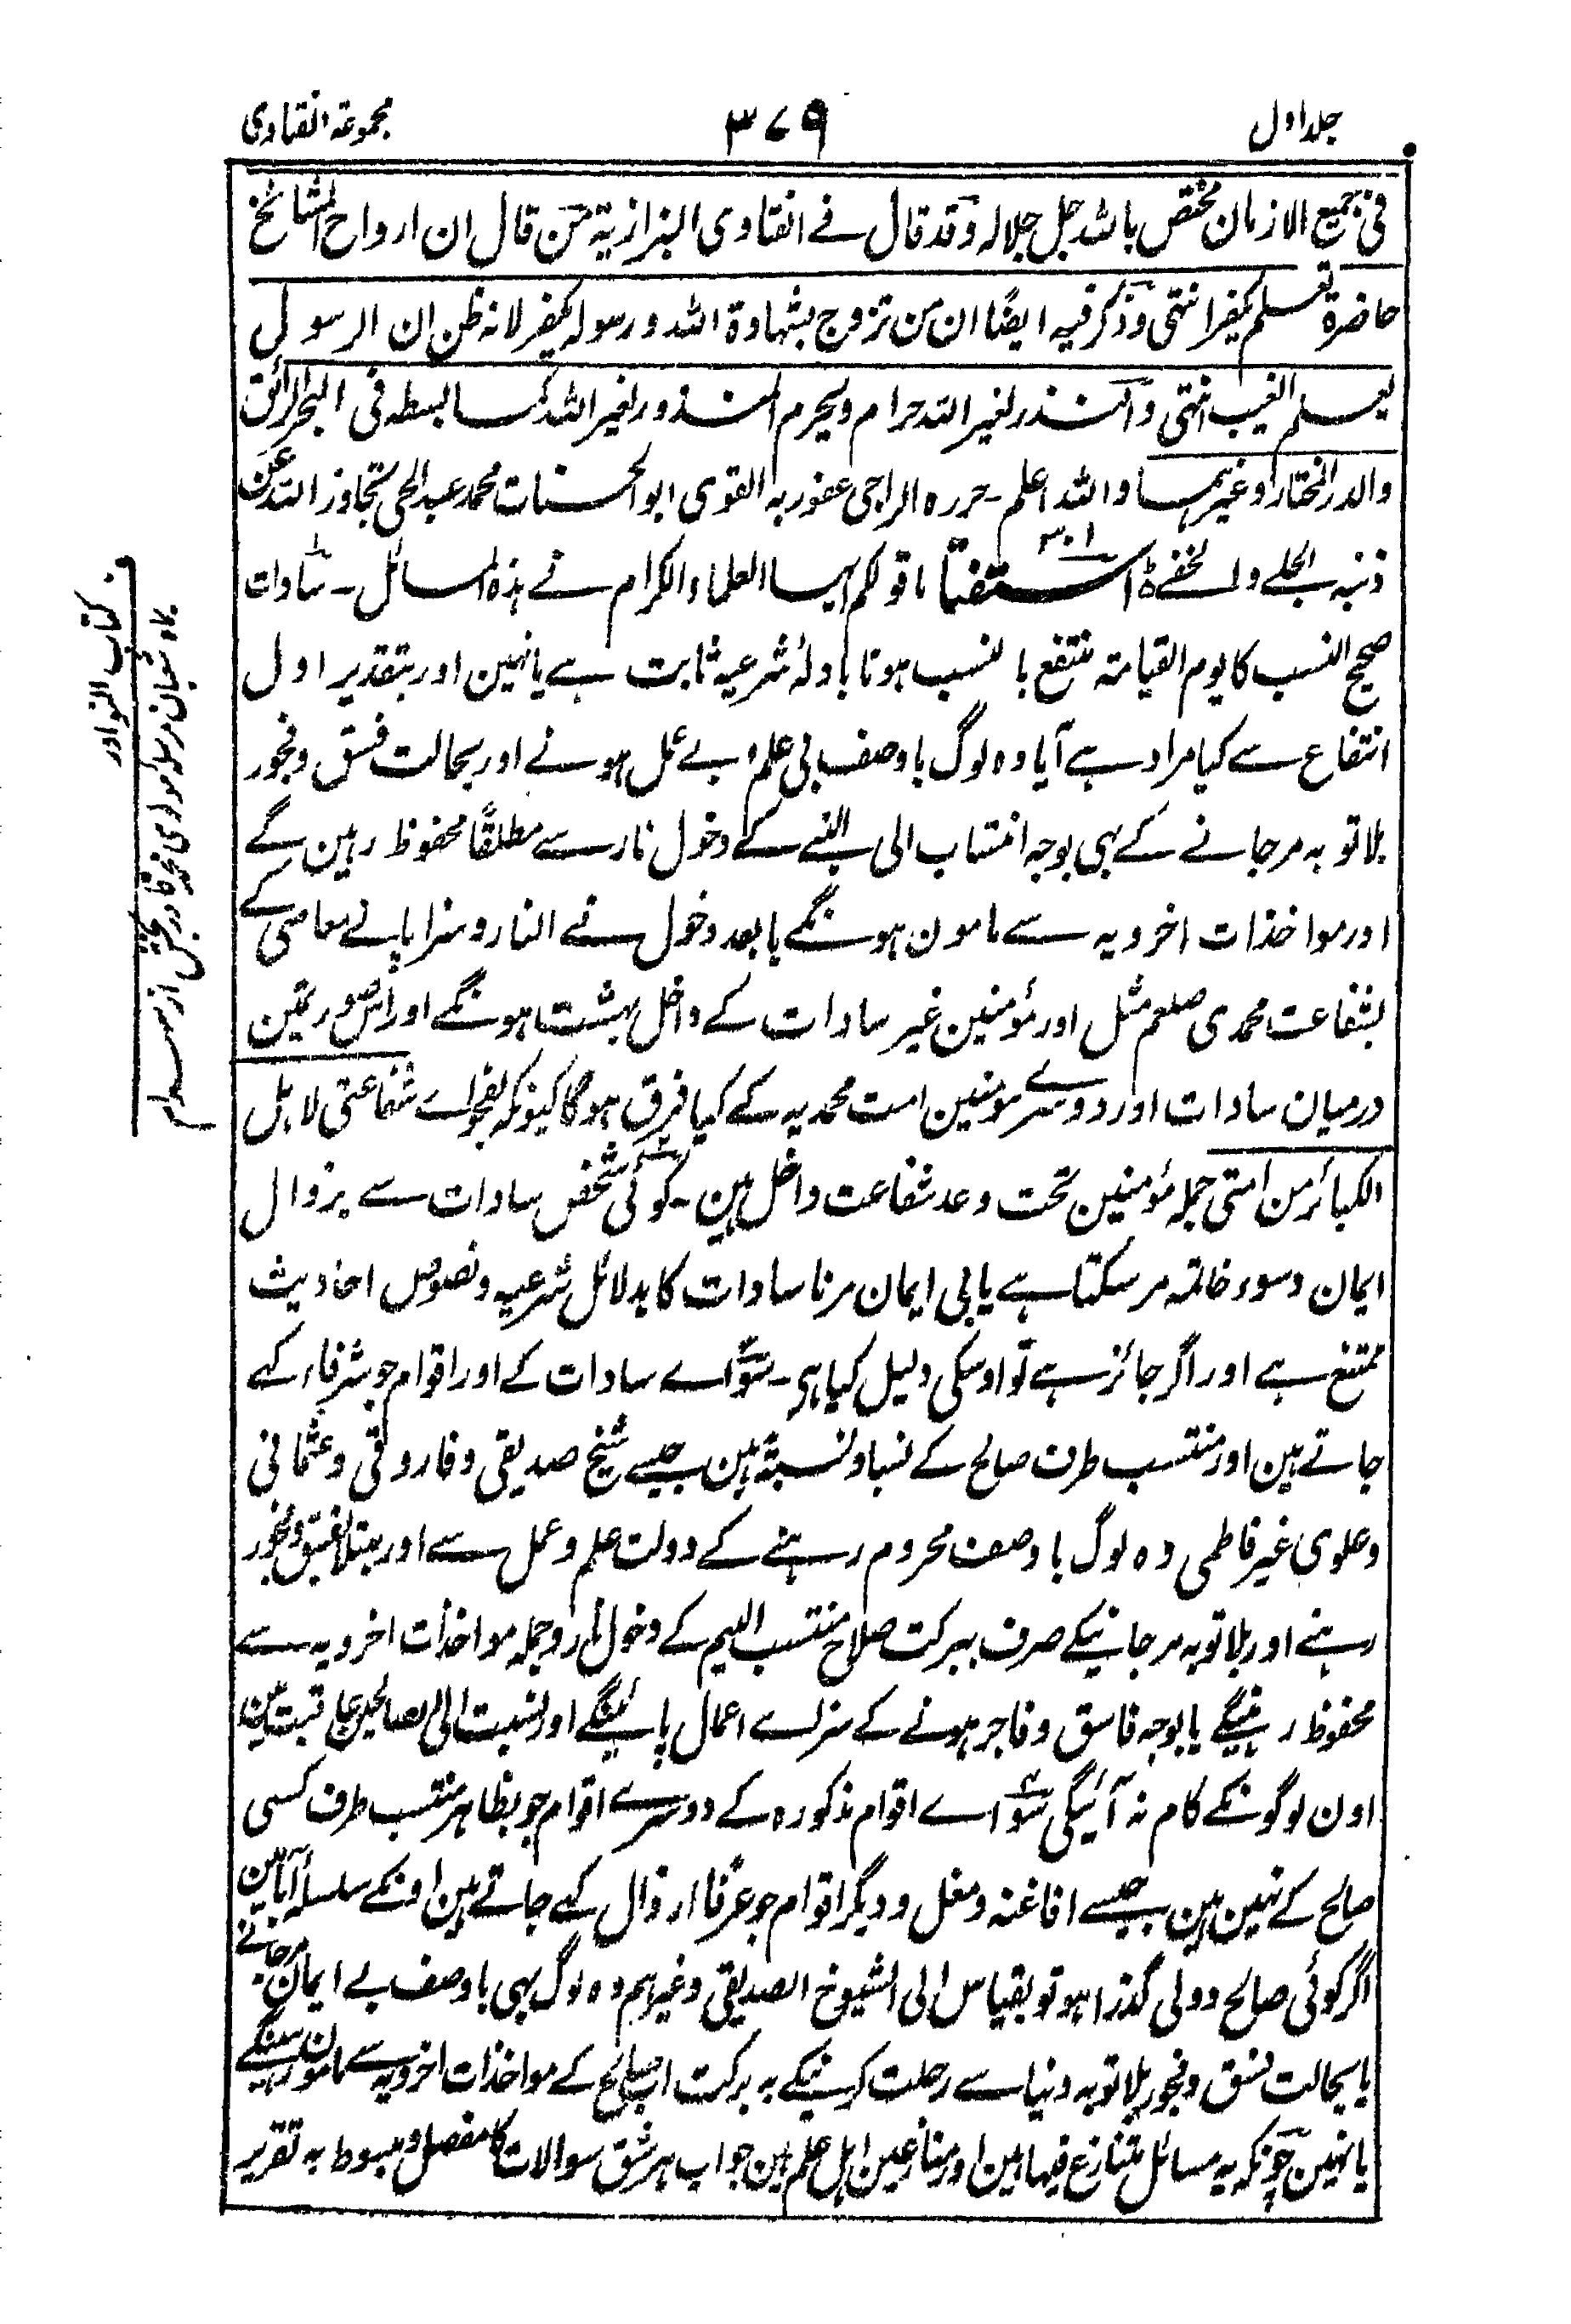 جلد اول
۳۷۹
مجموعۃ الفتاوی
فی جمیع الازمان مختص باللہ جل جلالہ وقد قال فے الفتاوی البزازیۃ من قال ان ارواح المشائخ
حاضرۃ تعلم یکفر انتہی وذکر فیہ ایضًا ان من تزوج بشہادۃ اللہ ورسولہ یکفر لانہ ظن ان الرسول
یعلم الغیب انتہی والنذر لغیر اللہ حرام ویحرم المنذور لغیر اللہ کما بسطہ فی البحر الرائق
والدر المختار وغیرہما واللہ اعلم۔ حررہ الراجی عفو ربہ القوی ابو الحسنات محمد عبد الحی تجاوز اللہ عن
ذنبہ الجلے والخفے ۵ استفتا ۳۰۱ ما قولکم ایہا العلماء الکرام فے ہذہ المسائل۔ سادات
صحیح النسب کا یوم القیامۃ منتفع بالنسب ہونا بادلۂ شرعیہ ثابت ہے یا نہین اور بتقدیر اول
انتفاع سے کیا مراد ہے آیا وہ لوگ با وصف بی علم و بے عمل ہونے اور بحالت فسق وفجور
بلا توبہ مرجانے کے بہی بوجہ انتساب الی النبے کے دخول نار سے مطلقًا محفوظ رہین گے
اور مواخذات اخرویہ سے مامون ہونگے یا بعد دخول فے النار وسزا پانے معاصی کے
بشفاعت محمدی صلعم مثل اور مؤمنین غیر سادات کے داخل بہشت ہونگے اور اس صورتمین
درمیان سادات اور دوسرے مومنین امت محمدیہ کے کیا فرق ہوگا کیونکہ بفحواے شفاعتی لاہل
الکبائر من امتی جملہ مؤمنین تحت وعد شفاعت داخل ہین۔ کوئی شخص سادات سے بزوال
ایمان وسوء خاتمہ مرسکتا ہے یا بی ایمان مرنا سادات کا بدلائل شرعیہ ونصوص احادیث
ممتنع ہے اور اگر جائز ہے تو اوسکی دلیل کیا ہی۔ سواے سادات کے اور اقوام جو شرفاء کہے
جاتے ہین اور منتسب طرف صالح کے نسبا ونسبۃ ہین جیسے شیخ صدیقی وفاروقی وعثمانی
وعلوی غیر فاطمی وہ لوگ با وصف محروم رہنے کے دولت علم وعمل سے اور مبتلا بفسق وفجور
رہنے اور بلا توبہ مرجانیکے صرف ببرکت صلاح منتسب الیہم کے دخول نار وجملہ مواخذات اخرویہ سے
محفوظ رہینگے یا بوجہ فاسق وفاجر ہونے کے سزاے اعمال پائینگے اور نسبت الی الصالحین عاقبت مین
اون لوگونکے کام نہ آئیگی سواے اقوام مذکورہ کے دوسرے اقوام جو بظاہر منتسب طرف کسی
صالح کے نہین ہین جیسے افاغنہ ومغل ودیگر اقوام جو عرفا ارذال کہے جاتے ہین اونکے سلسلہ آبا مین
اگر کوئی صالح وولی گذرا ہو تو بقیاس الی الشیوخ الصدیقی وغیرہم وہ لوگ بہی با وصف بے ایمان مرجانے
یا بحالت فسق وفجور بلا توبہ دنیا سے رحلت کرنیکے بہ برکت اب صالح کے مواخذات اخرویہ سے مامون رہینگے
یا نہین چونکہ یہ مسائل متنازع فیہا ہین اور متنازعین اہل علم ہین جواب ہر شق سوالات کا مفصل ومبسوط بہ تقریر
کتاب النوادر
ماہ شعبان مرسلہ مولوی محمد قادر بخش از سہسرام